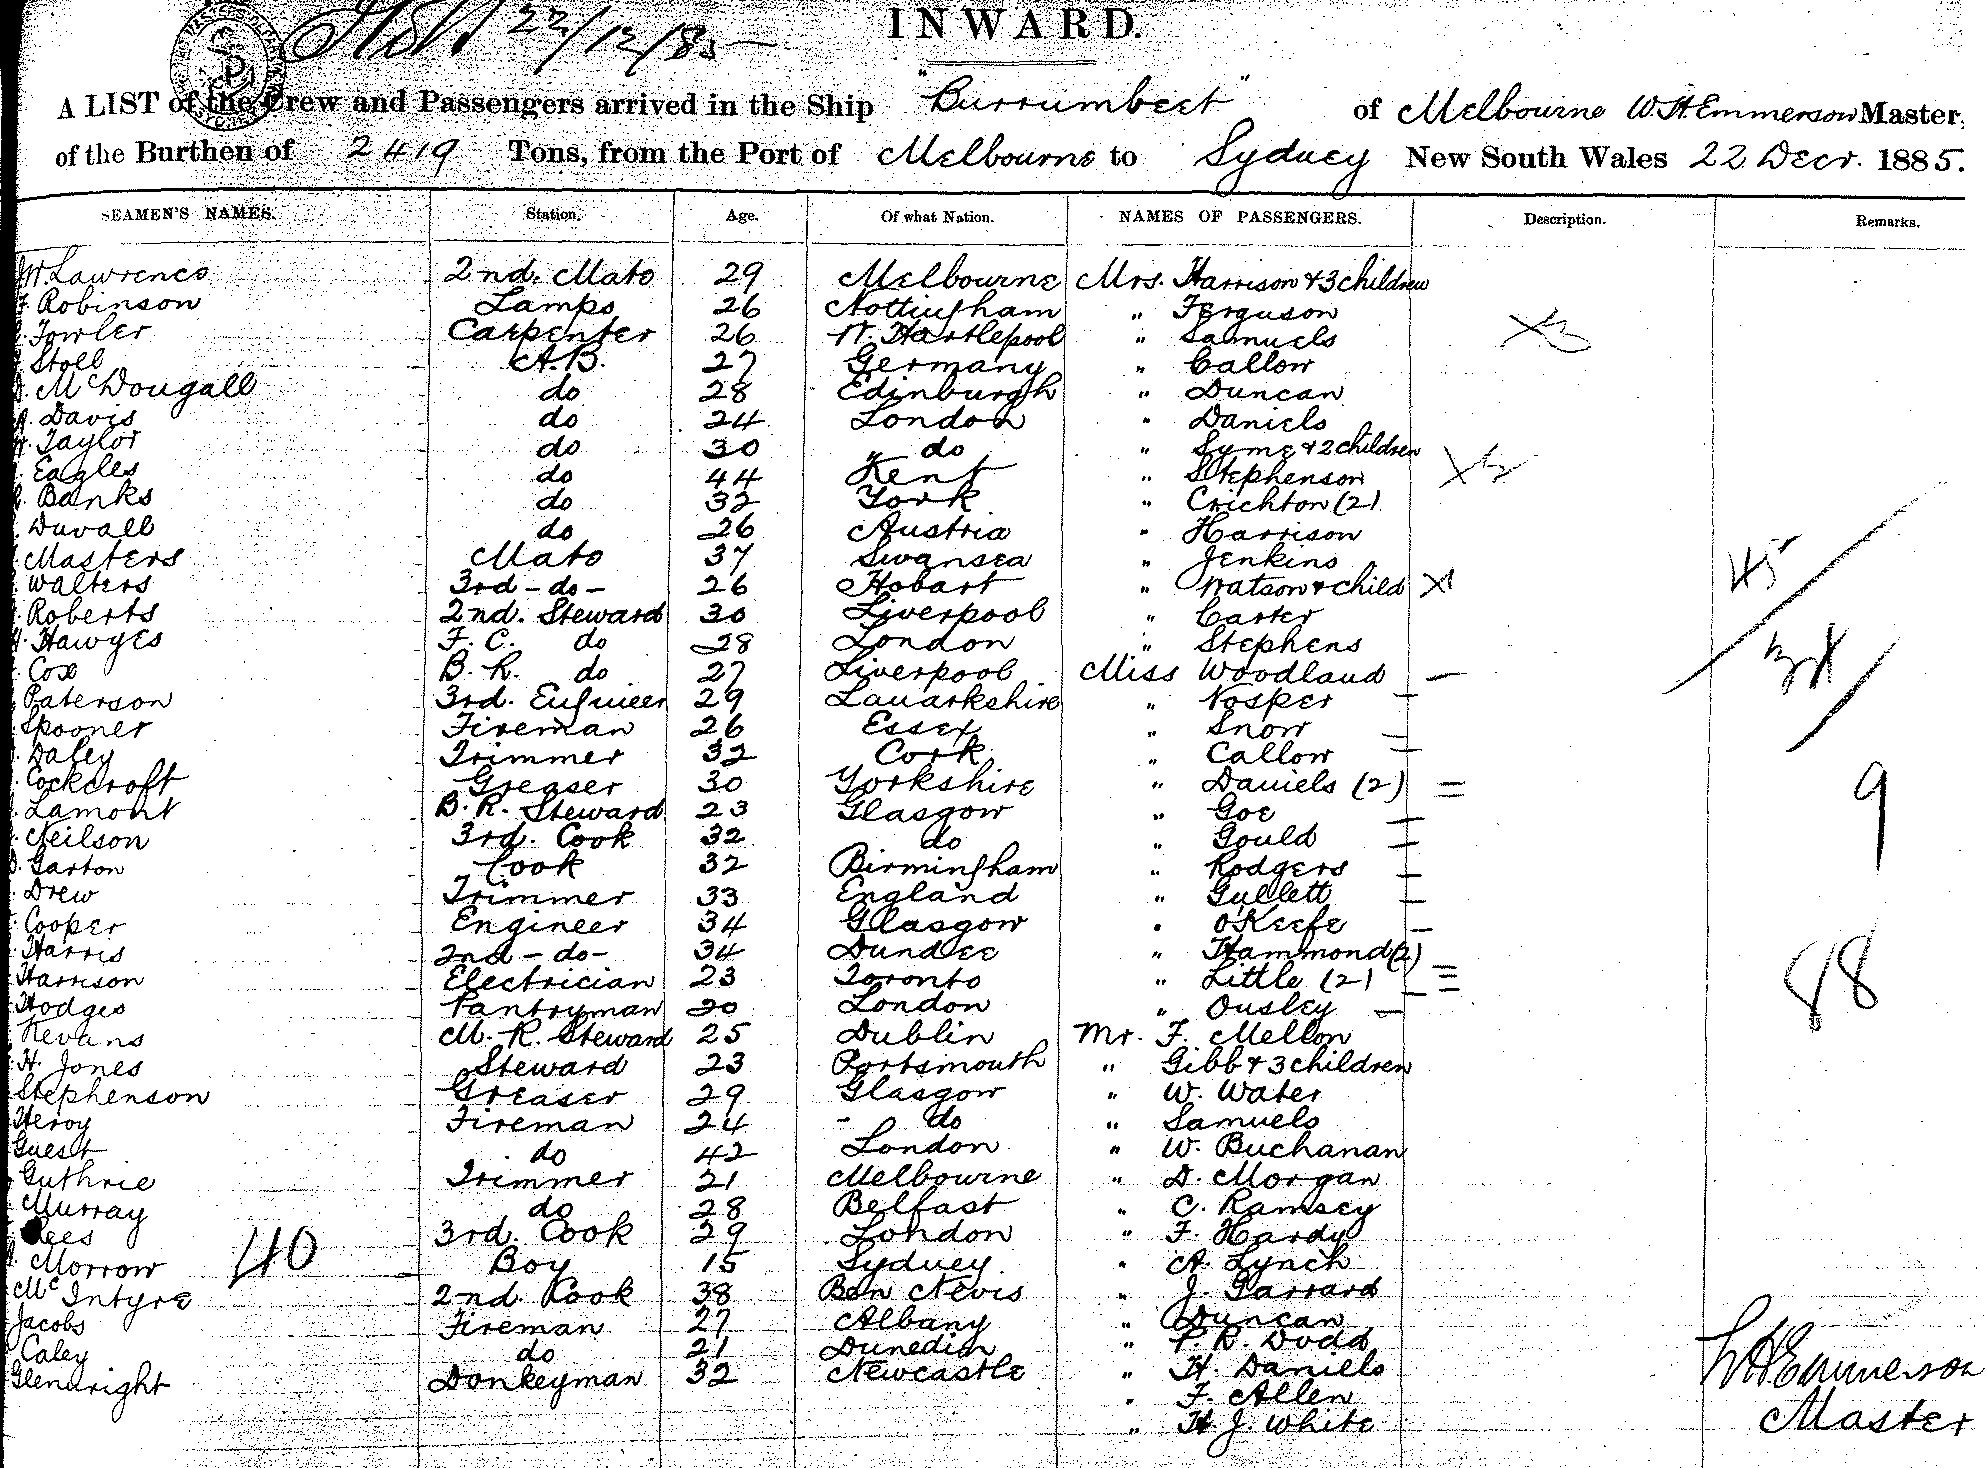 22/12/85
INWARD.
A LIST of the Crew and Passengers arrived in the Ship "Burrumbeet" of Melbourne W. H. Emmerson Master,
of the Burthen of 2419 Tons, from the Port of Melbourne to Sydney New South Wales 22 Decr. 1885.
SEAMEN'S NAMES. Station. Age. Of what Nation. NAMES OF PASSENGERS. Description. Remarks.
Lawrence 2nd. Mate 29 Melbourne Mrs. Harrison & 3 children
Robinson Lamps 26 Nottingham " Ferguson
Fowler Carpenter 26 W. Hartlepool " Samuels X3
Stoll A.B. 27 Germany " Callow
McDougall do 28 Edinburgh " Duncan
Davis do 24 London " Daniels
Taylor do 30 " do " Syme & 2 children
Eagles do 44 Kent " Stephenson X2
Banks do 32 York " Crichton (2)
Duvall do 26 Austria " Harrison
Masters Mate 37 Swansea " Jenkins 45
Walters 3rd - do - 26 Hobart " Watson & child X1
Roberts 2nd. Steward 30 Liverpool " Carter
Hawyes F. C. do 28 London " Stephens
Cox B. R. do 27 Liverpool Miss Woodland —
Paterson 3rd. Engineer 29 Lanarkshire " Vosper —
Spooner Fireman 26 Essex " Snow —
Daley Trimmer 32 Cork " Callow —
Cockcroft Greaser 30 Yorkshire " Daniels (2) = 9
Lamont B. R. Steward 23 Glasgow " Goe —
Neilson 3rd. Cook 32 do " Gould —
Garton Cook 32 Birmingham " Rodgers —
Drew Trimmer 33 England " Gullett —
Cooper Engineer 34 Glasgow " O'Keefe —
Harris 2nd - do - 34 Dundee " Hammond (2) = 88
Harrison Electrician 23 Toronto " Little (2) =
Hodges Pantryman 20 London " Ousley —
Kevans M. R. Steward 25 Dublin Mr. F. Mellon
H. Jones Steward 23 Portsmouth " Gibb & 3 children
Stephenson Greaser 29 Glasgow " W. Water
Heroy Fireman 24 - do " Samuels
Guest do 42 London " W. Buchanan
Guthrie Trimmer 21 Melbourne " D. Morgan
Murray do 28 Belfast " C. Ramsey
Rees 3rd. Cook 29 London " F. Hardy
Morrow 40 Boy 15 Sydney " A. Lynch
McIntyre 2nd. Cook 38 Ben Nevis " J. Garrard
Jacobs Fireman 27 Albany " Duncan
Caley do 21 Dunedin " P. R. Dodd
Glenwright Donkeyman 32 Newcastle " H. Daniels
" F. Allen
" H. J. White
W H Emmerson
Master